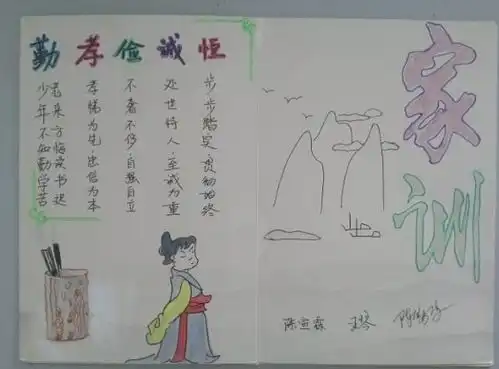 家训
勤 孝 俭 诚 恒
少年不知勤学苦
老来方悔读书迟
孝悌为先·忠信为本
不奢不侈·自强自立
处世待人·至诚为重
步步踏实·贯彻始终
陈宣霖